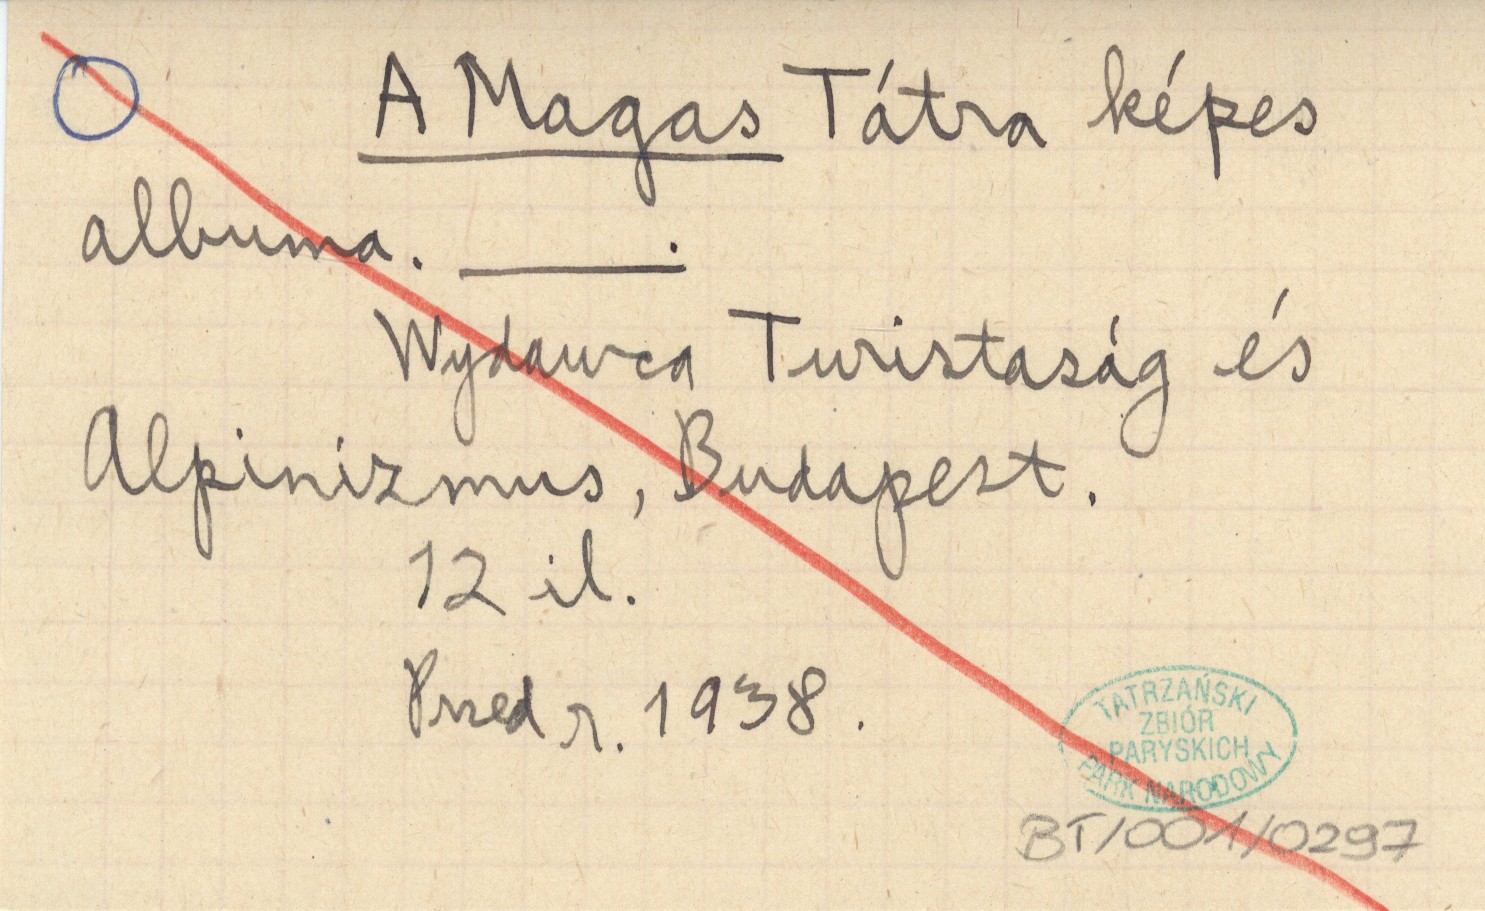 A Magas Tátra képes
albuma. ______.
Wydawca Turistaság és
Alpinizmus, Budapest.
12 il.
Przed r. 1938.
TATRZAŃSKI
ZBIÓR
PARYSKICH
PARK NARODOWY
BT/001/0297